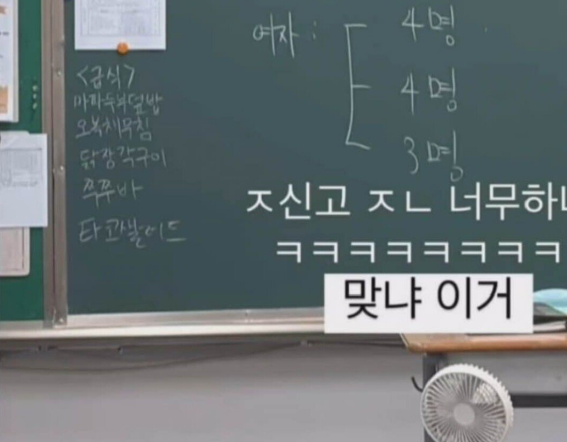 <급식>
마파두부덮밥
오복채무침
닭장각구이
쭉쭈바
타코샐러드
여자 :
4명
4명
3명
ㅈ신고 ㅈㄴ 너무하네
ㅋㅋㅋㅋㅋㅋㅋㅋㅋ
맞냐 이거